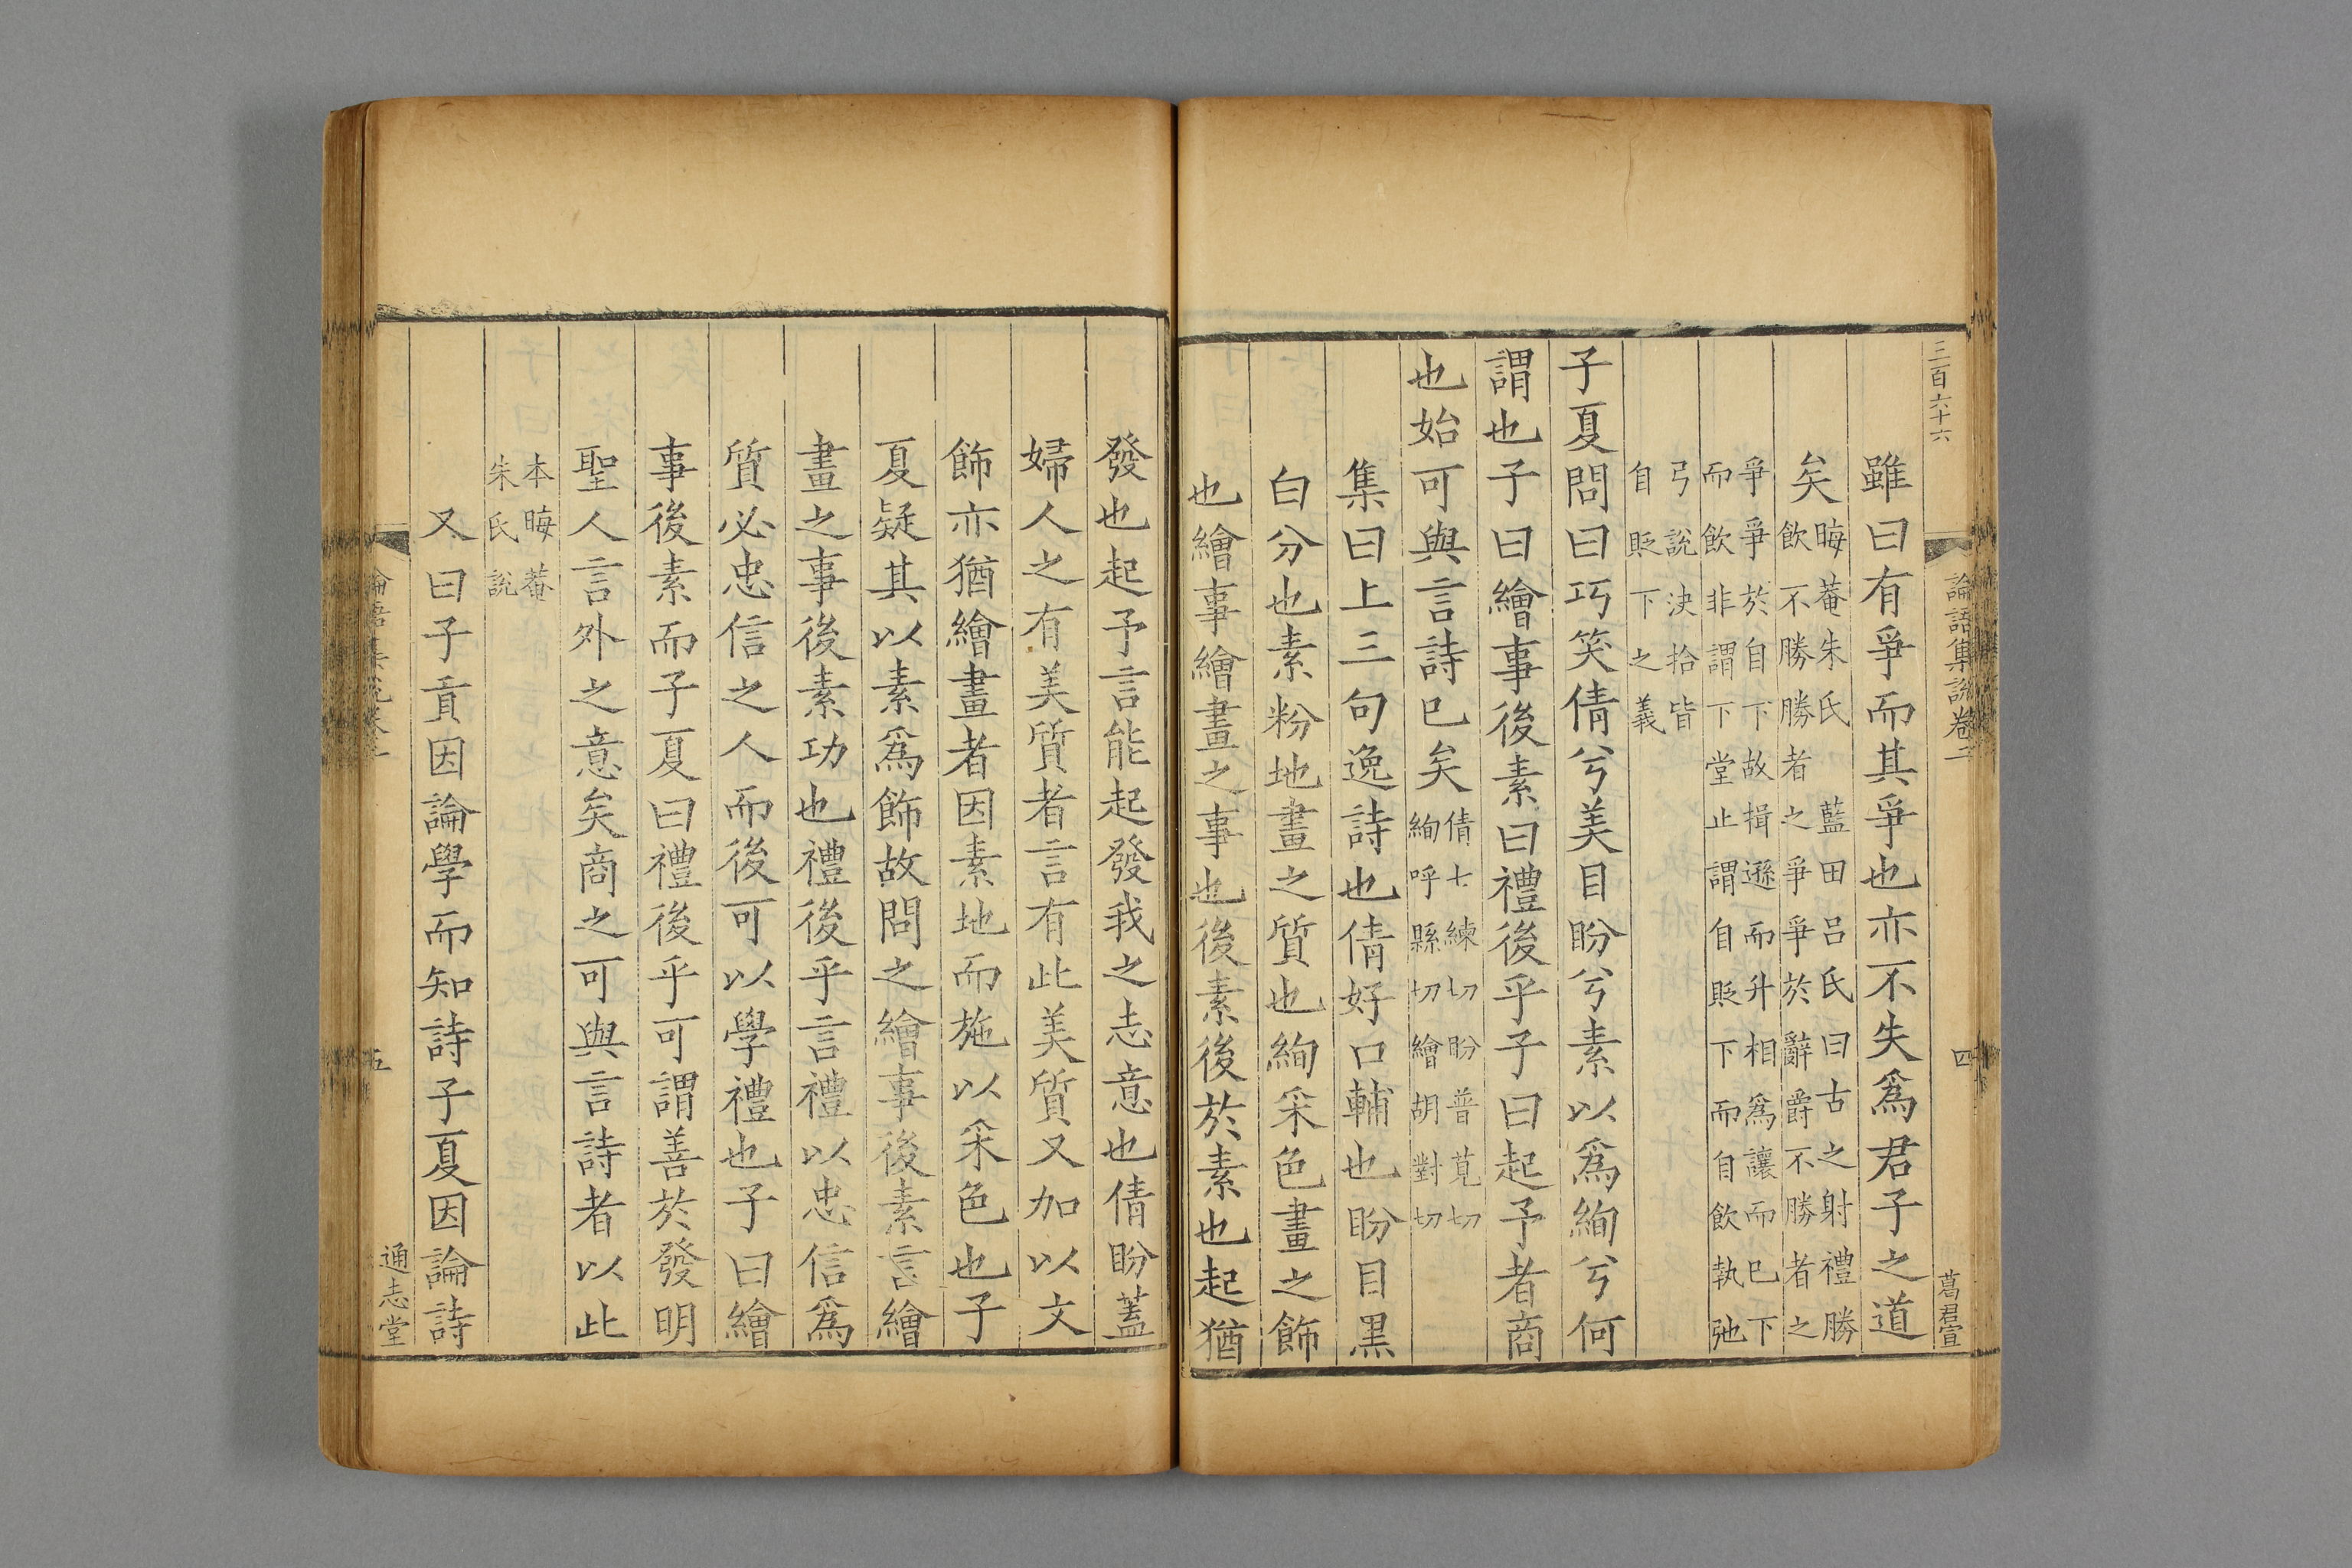 三百六十六
論語集說卷二
四
葛君宣
雖曰有爭而其爭也亦不失爲君子之道
矣晦菴朱氏　藍田呂氏曰古之射禮勝
飲不勝勝者之爭爭於辭爵不勝者之
爭爭於自下故揖遜而升相爲讓而已下
而飲非謂下堂止謂自貶下而自飲執弛
弓說決拾皆
自貶下之義
子夏問曰巧笑倩兮美目盼兮素以爲絢兮何
謂也子曰繪事後素曰禮後乎子曰起予者商
也始可與言詩已矣倩七練切盼普莧切
絢呼縣切繪胡對切
集曰上三句逸詩也倩好口輔也盼目黑
白分也素粉地畫之質也絢采色畫之飾
也繪事繪畫之事也後素後於素也起猶
發也起予言能起發我之志意也倩盼蓋
婦人之有美質者言有此美質又加以文
飾亦猶繪畫者因素地而施以采色也子
夏疑其以素爲飾故問之繪事後素言繪
畫之事後素功也禮後乎言禮以忠信爲
質必忠信之人而後可以學禮也子曰繪
事後素而子夏曰禮後乎可謂善於發明
聖人言外之意矣商之可與言詩者以此
本晦菴
朱氏說
又曰子貢因論學而知詩子夏因論詩
論語集說卷二
五
通志堂